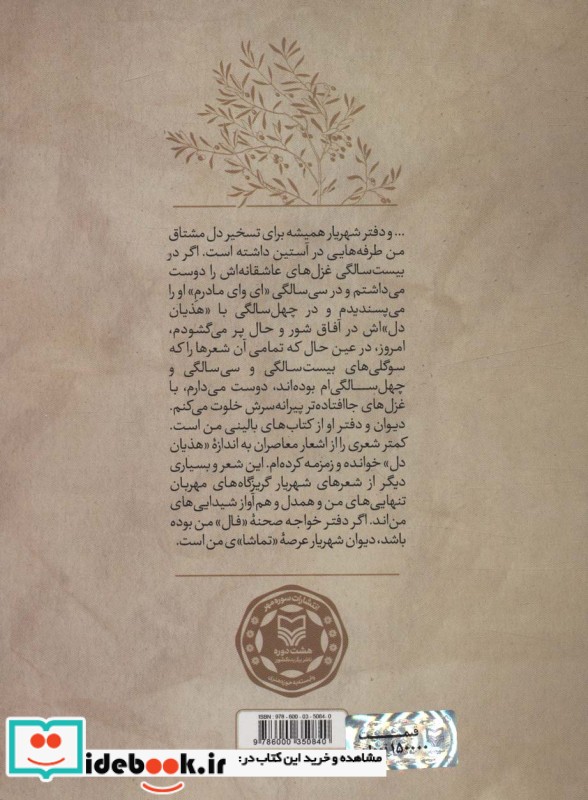 ... و دفتر شهریار همیشه برای تسخیر دل مشتاق
من طرفه‌هایی در آستین داشته است. اگر در
بیست‌سالگی غزل‌های عاشقانه‌اش را دوست
می‌داشتم و در سی‌سالگی «ای وای مادرم» او را
می‌پسندیدم و در چهل‌سالگی با «هذیان
دل»اش در آفاق شور و حال پر می‌گشودم،
امروز، در عین حال که تمامی آن شعرها را که
سوگلی‌های بیست‌سالگی و سی‌سالگی و
چهل‌سالگی‌ام بوده‌اند، دوست می‌دارم، با
غزل‌های جاافتاده‌تر پیرانه‌سرش خلوت می‌کنم.
دیوان و دفتر او از کتاب‌های بالینی من است.
کمتر شعری را از اشعار معاصران به اندازهٔ «هذیان
دل» خوانده و زمزمه کرده‌ام. این شعر و بسیاری
دیگر از شعرهای شهریار گریزگاه‌های مهربان
تنهایی‌های من و همدل و هم‌آواز شیدایی‌های
من‌اند. اگر دفتر خواجه صحنهٔ «فال» من بوده
باشد، دیوان شهریار عرصهٔ «تماشا»ی من است.
انتشارات سوره مهر
هشت دوره
ناشر برگزیده کشور
وابسته به حوزه هنری
ISBN: 978-600-03-5084-0
9 786000 350840
قیمت
iidebook.ir
مشاهده و خرید این کتاب در: